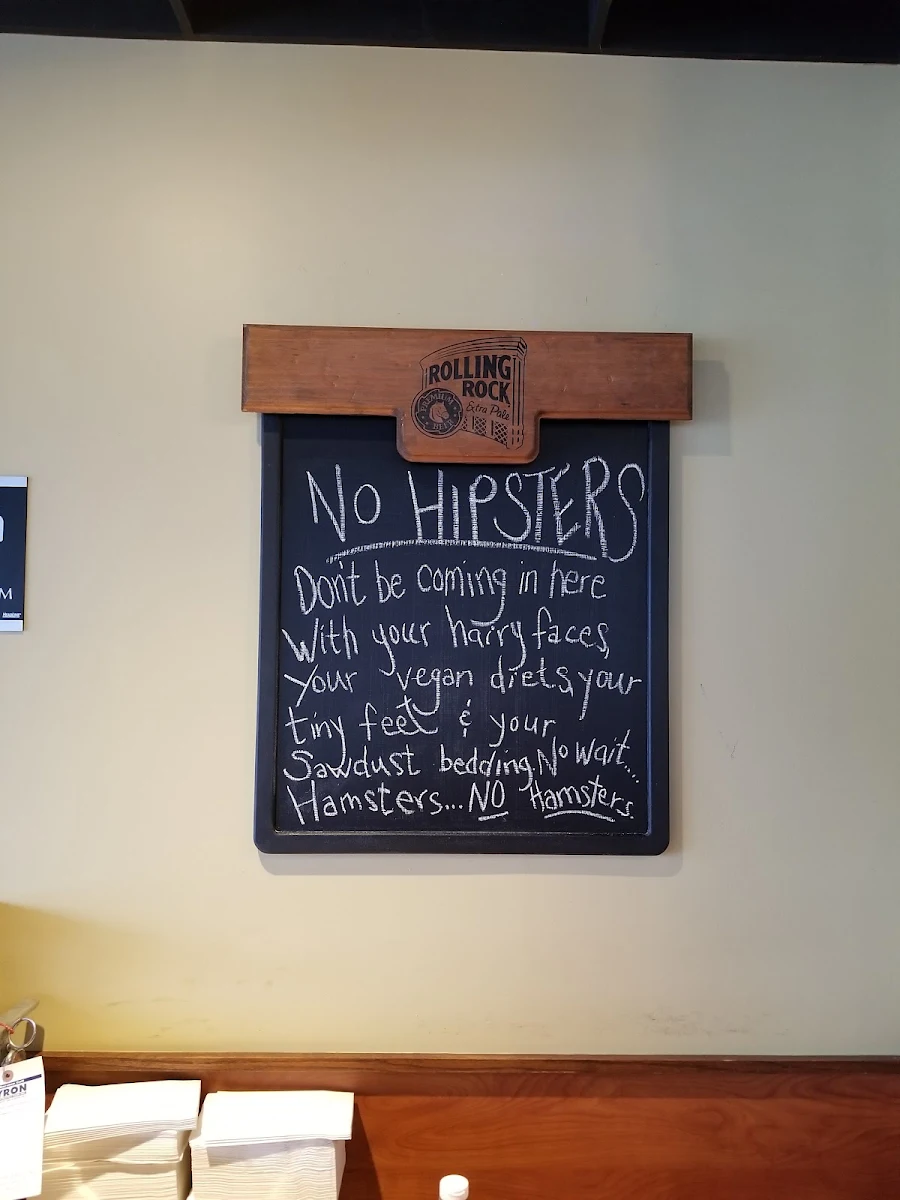 ROLLING
ROCK
Extra Pale
PREMIUM
BEER
No HIPSTERS
Don't be coming in here
With your hairy faces,
Your vegan diets, your
tiny feet & your
Sawdust bedding. No wait....
Hamsters... NO Hamsters.
M
YRON